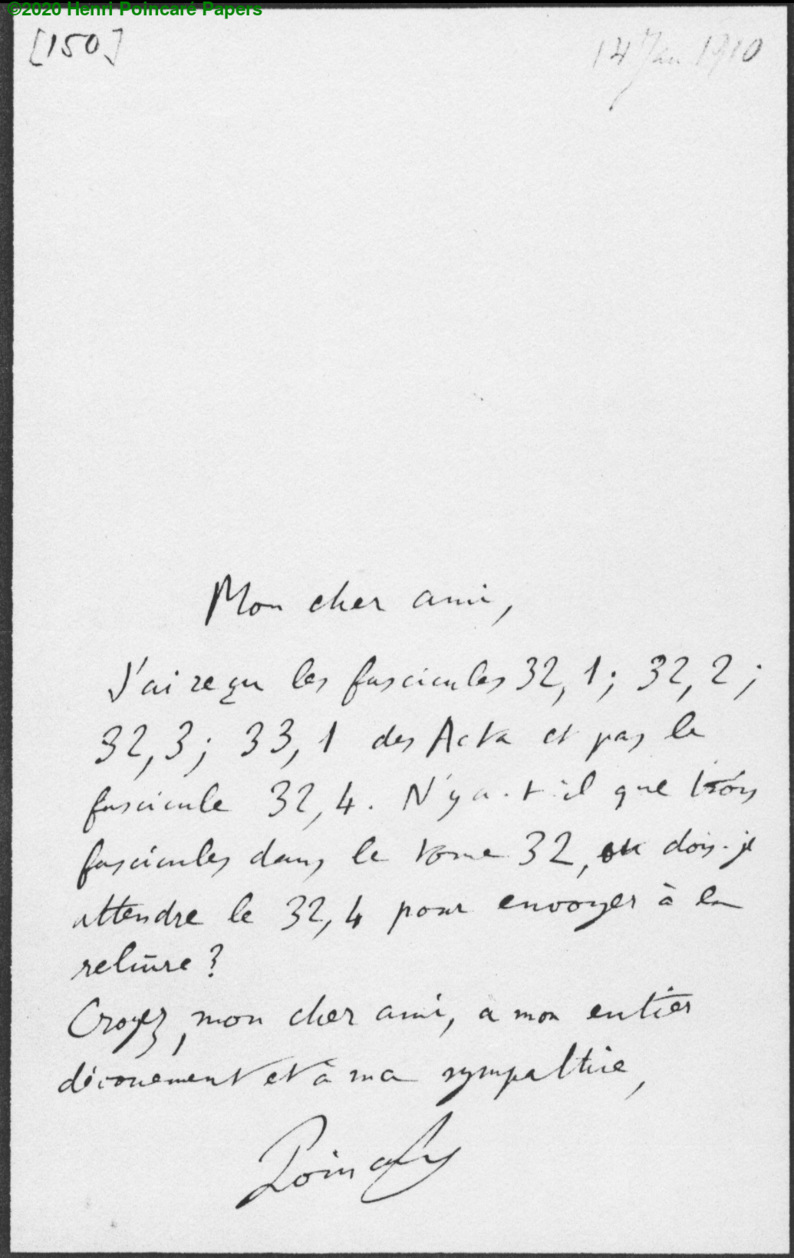 ©2020 Henri Poincaré Papers
[150]
14 Jan 1910
Mon cher ami,
J'ai reçu les fascicules 32, 1; 32, 2;
32, 3; 33, 1 des Acta et pas le
fascicule 32, 4. N'y a-t-il que trois
fascicules dans le tome 32, ou dois-je
attendre le 32, 4 pour envoyer à la
reliure?
Croyez, mon cher ami, à mon entier
dévouement et à ma sympathie,
Poincaré